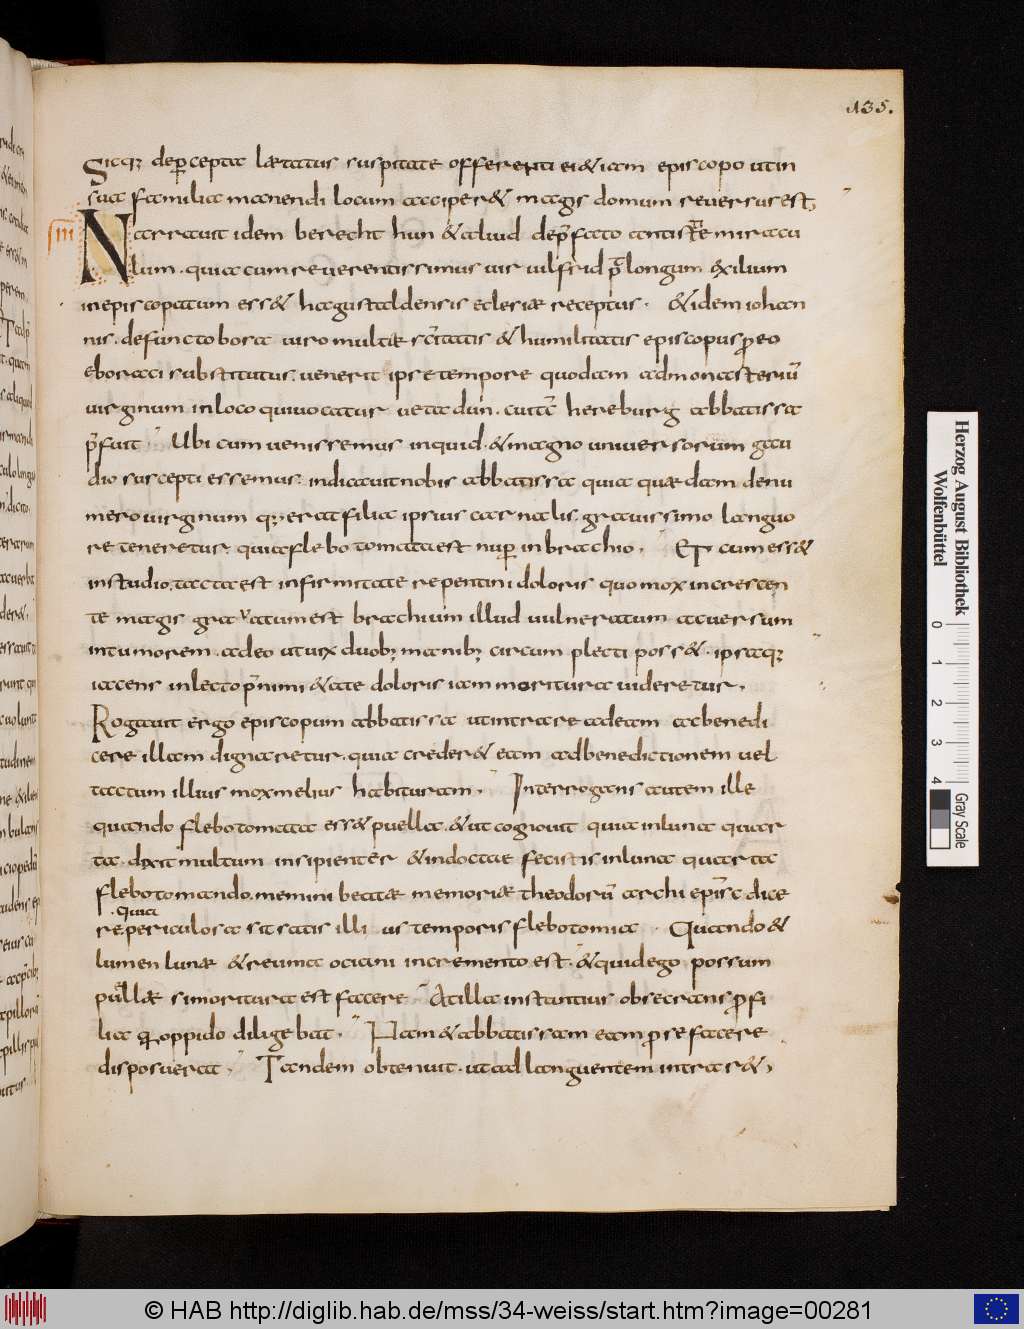 135.
Sicq; deꝑcepta lætatus suspitate offerenti ei & iam episcopo ut in
sua familia manendi locum acciper& magis domum reversus est;
IIII Narravit idem berecht hun & aliud de p̄fato antistite miracu
lum. quia cum reverentissimus vir uilfrid p̄ longum exilium
in episcopatum ess& hagustaldensis eclesiæ receptus. & idem iohan
nis. defuncto bosa viro multæ sc̄itatis & humilitatis episcopus ꝓ eo
eboraci substitutus. venerit ipse tempore quodam ad monasteriū
virginum in loco qui vocatur uetadun. cui tc̄ hereburg abbatissa
p̄fuit. Ubi cum venissemus inquid. & magno universorum gau
dio suscepti essemus. indicavit nobis abbatissa quia quædam de nu
mero virginum q; erat filia ipsius carnalis. gravissimo languo
re teneretur quia flebotomata est nuꝑ in brachio. Et cum ess&
in studio. tacta est infirmitate repentini doloris quo mox increscen
te magis gravatum est brachium illud vulneratum ac versum
in tumorem. adeo ut vix duob; manib; circum plecti poss&. ipsaq;
iacens in lecto p̄ nimi&ate doloris iam moritura videretur.
Rogavit ergo episcopum abbatissa ut intrare ad eam ac benedi
cere illam dignaretur. quia creder& eam ad benedictionem vel
tactum illius mox melius habituram. Interrogans autem ille
quando flebotomata ess& puella. & ut cognovit quia in luna quar
ta. dixit multum insipienter & indocte fecistis in luna quarta
flebotomando. memini beatæ memoriæ theodorū archi ep̄isc dice
.quia
re periculosa sit satis illi us temporis flebotomia. Quando &
lumen lunæ & reuma ociani in cremento est. & quid ego possum
puellæ si moritura est facere. At illa instantius obsecrans ꝓ fi
lia q̄ oppido dilige bat. Nam & abbatissam eam p se facere
disposuerat. Tandem obtenuit. ut ad languentem intrar&.
Herzog August Bibliothek
Wolfenbüttel
0 1 2 3 4
Gray Scale
© HAB http://diglib.hab.de/mss/34-weiss/start.htm?image=00281